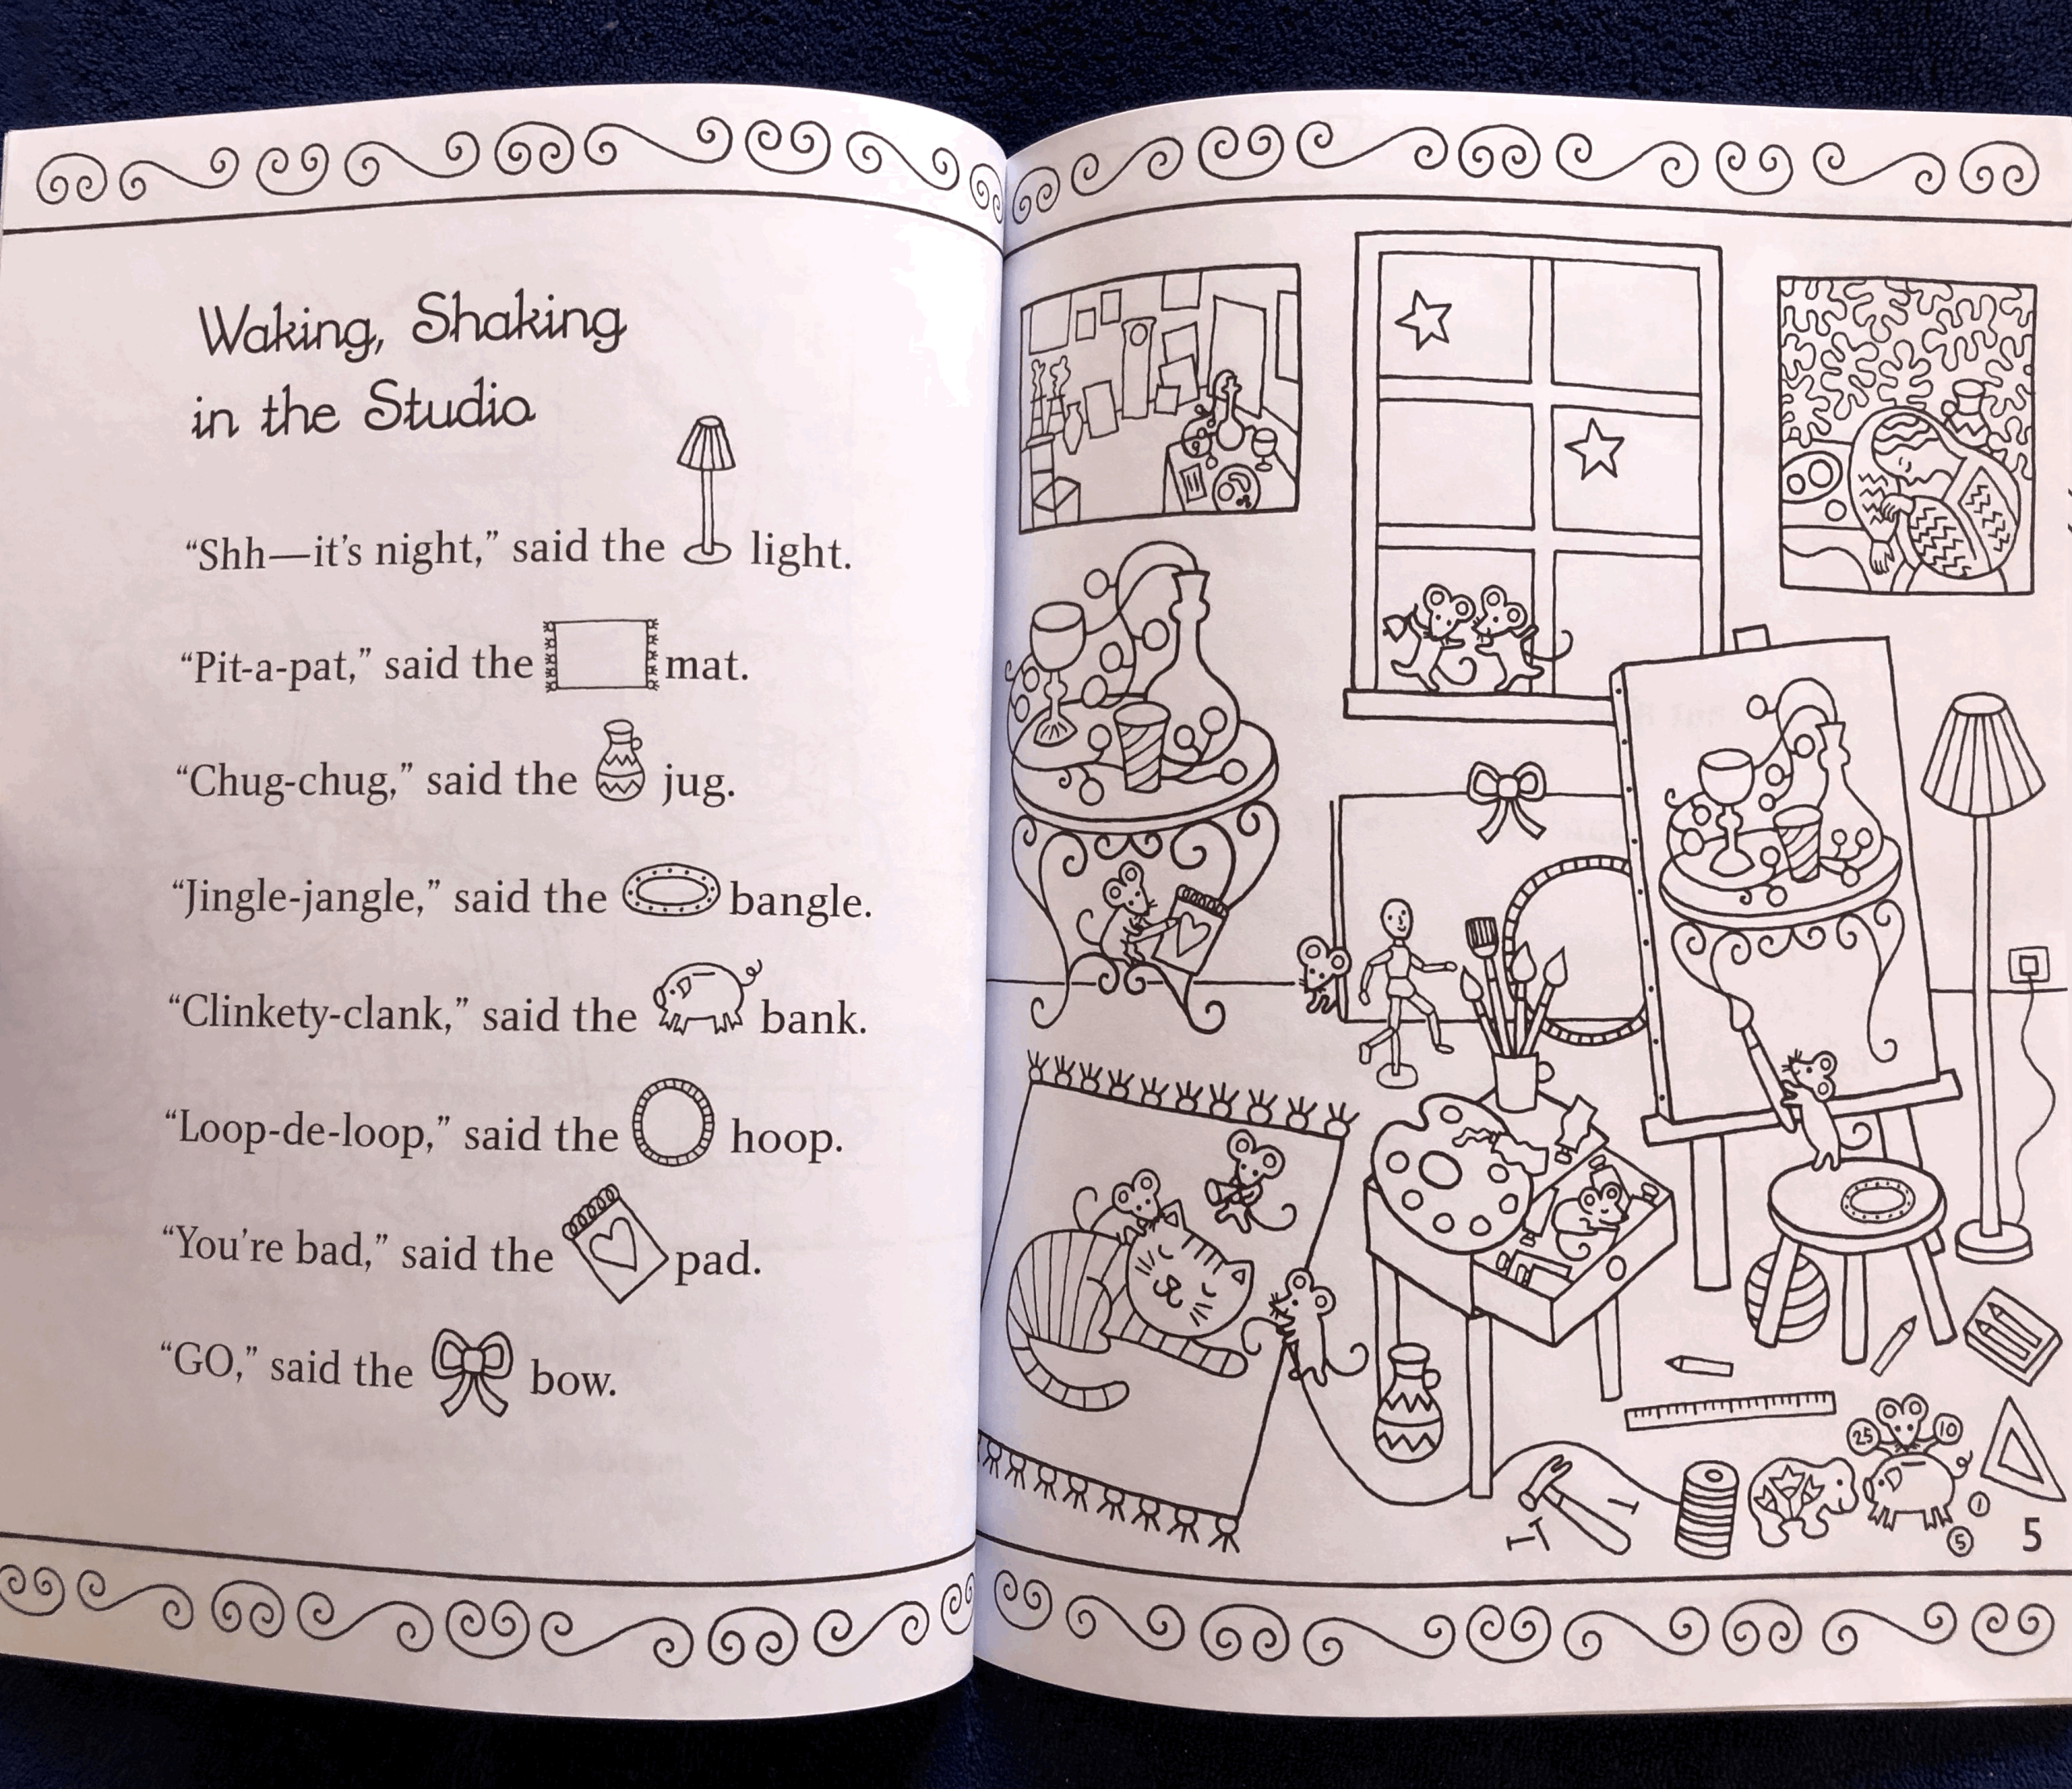 Waking, Shaking
in the Studio
“Shh—it’s night,” said the light.
“Pit-a-pat,” said the mat.
“Chug-chug,” said the jug.
“Jingle-jangle,” said the bangle.
“Clinkety-clank,” said the bank.
“Loop-de-loop,” said the hoop.
“You’re bad,” said the pad.
“GO,” said the bow.
25
10
1
5
5